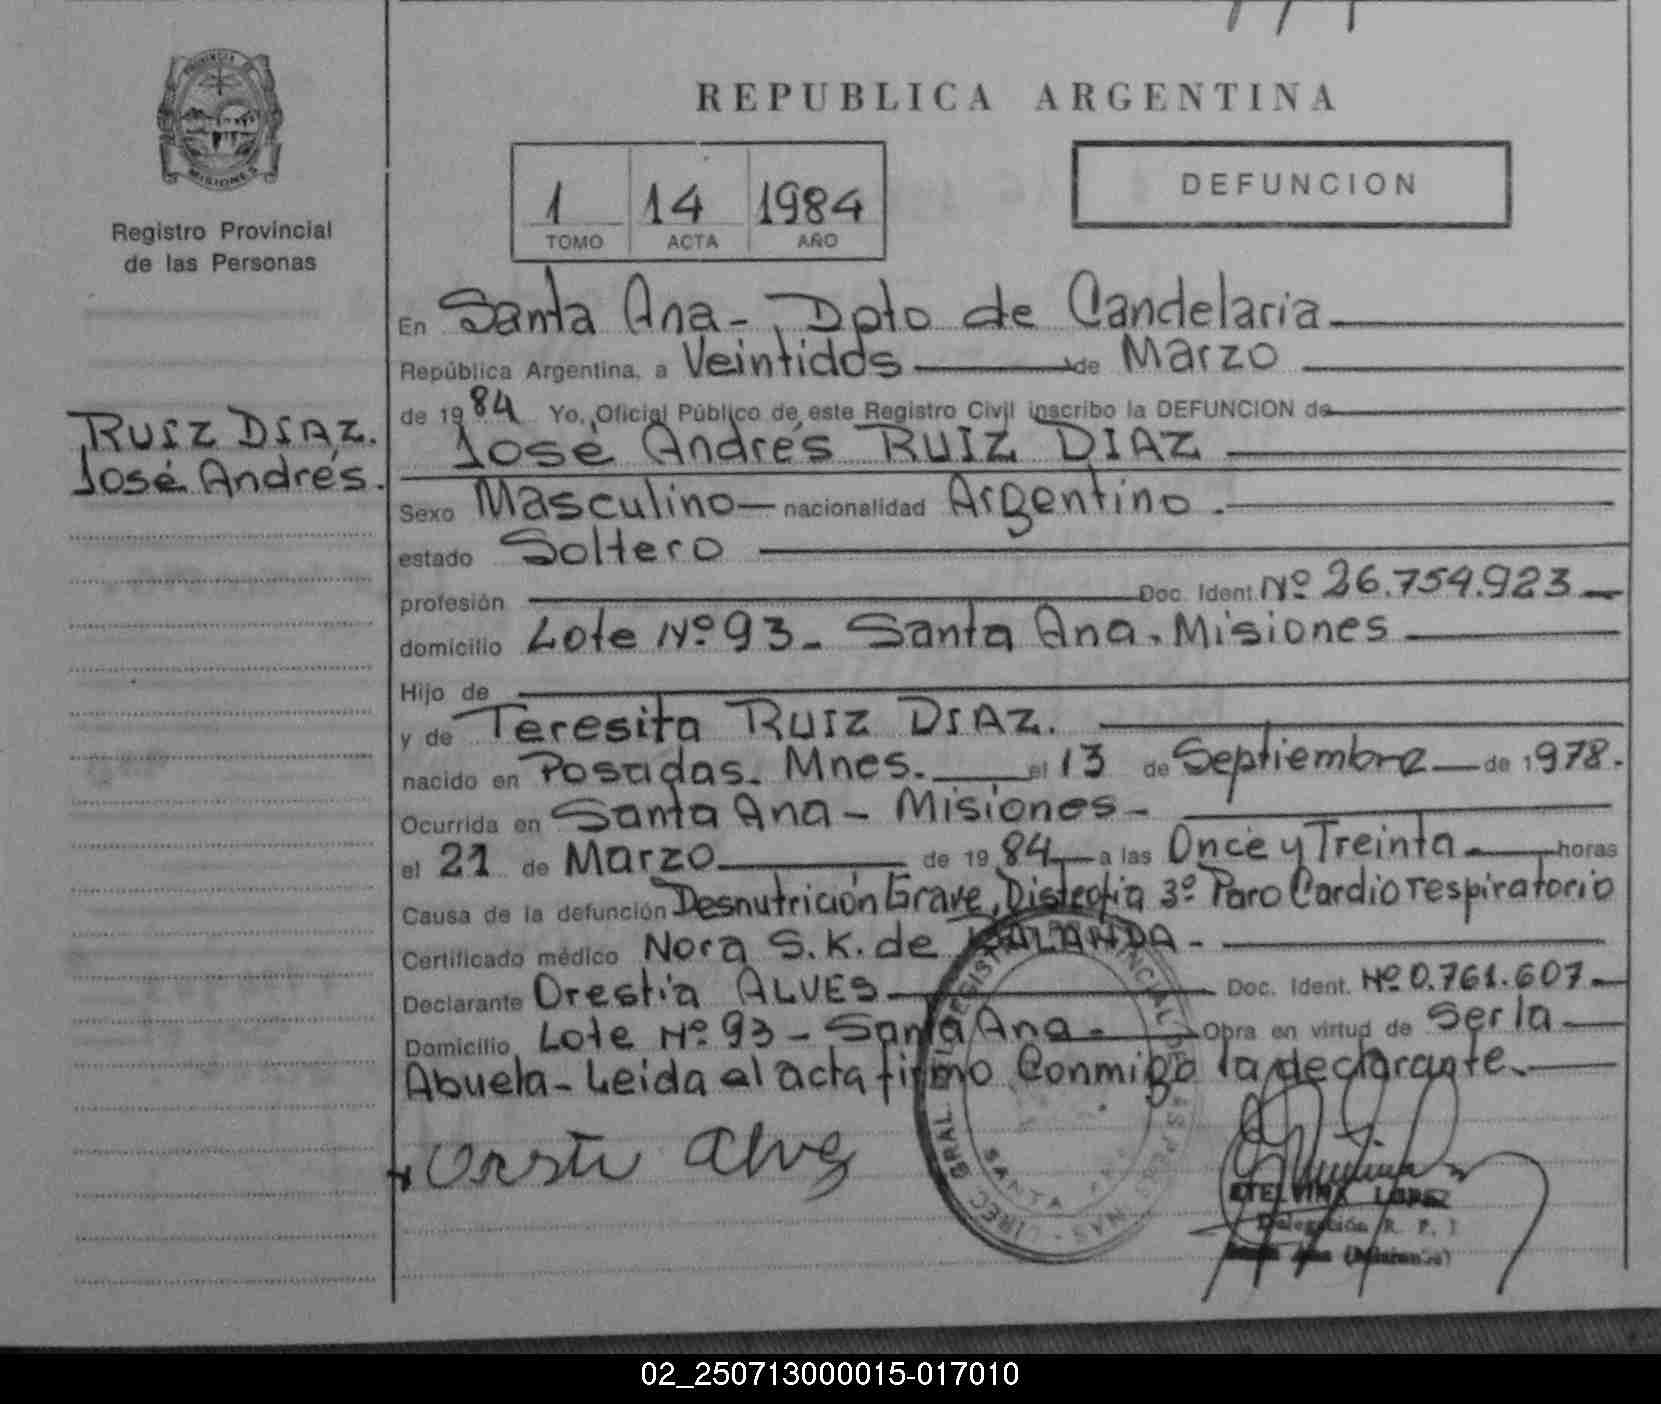 REPUBLICA ARGENTINA
PROVINCIA
MISIONES
Registro Provincial
de las Personas
1 14 1984
TOMO ACTA AÑO
DEFUNCION
RUIZ DIAZ.
José Andrés.
En Santa Ana - Dpto de Candelaria
República Argentina, a Veintidós de Marzo
de 1984 Yo, Oficial Público de este Registro Civil inscribo la DEFUNCION de
José Andrés RUIZ DIAZ
Sexo Masculino nacionalidad Argentino.
estado Soltero
profesión Doc. Ident. Nº 26.759.923
domicilio Lote Nº 93 - Santa Ana. Misiones
Hijo de
y de Teresita RUIZ DIAZ.
nacido en Posadas. Mnes. el 13 de Septiembre de 1978.
Ocurrida en Santa Ana - Misiones -
el 21 de Marzo de 1984 a las Once y Treinta horas
Causa de la defunción Desnutrición Grave, 3º Paro Cardiorespiratorio
Certificado médico Nora S. K. de
Declarante Orestia ALVES Doc. Ident. Nº 0.761.607
Domicilio Lote Nº 93 - Santa Ana - Obra en virtud de Ser la
Abuela - Leida el acta firmo Conmigo la declarante.
SANTA ANA
LOPEZ
Delegación R. P.